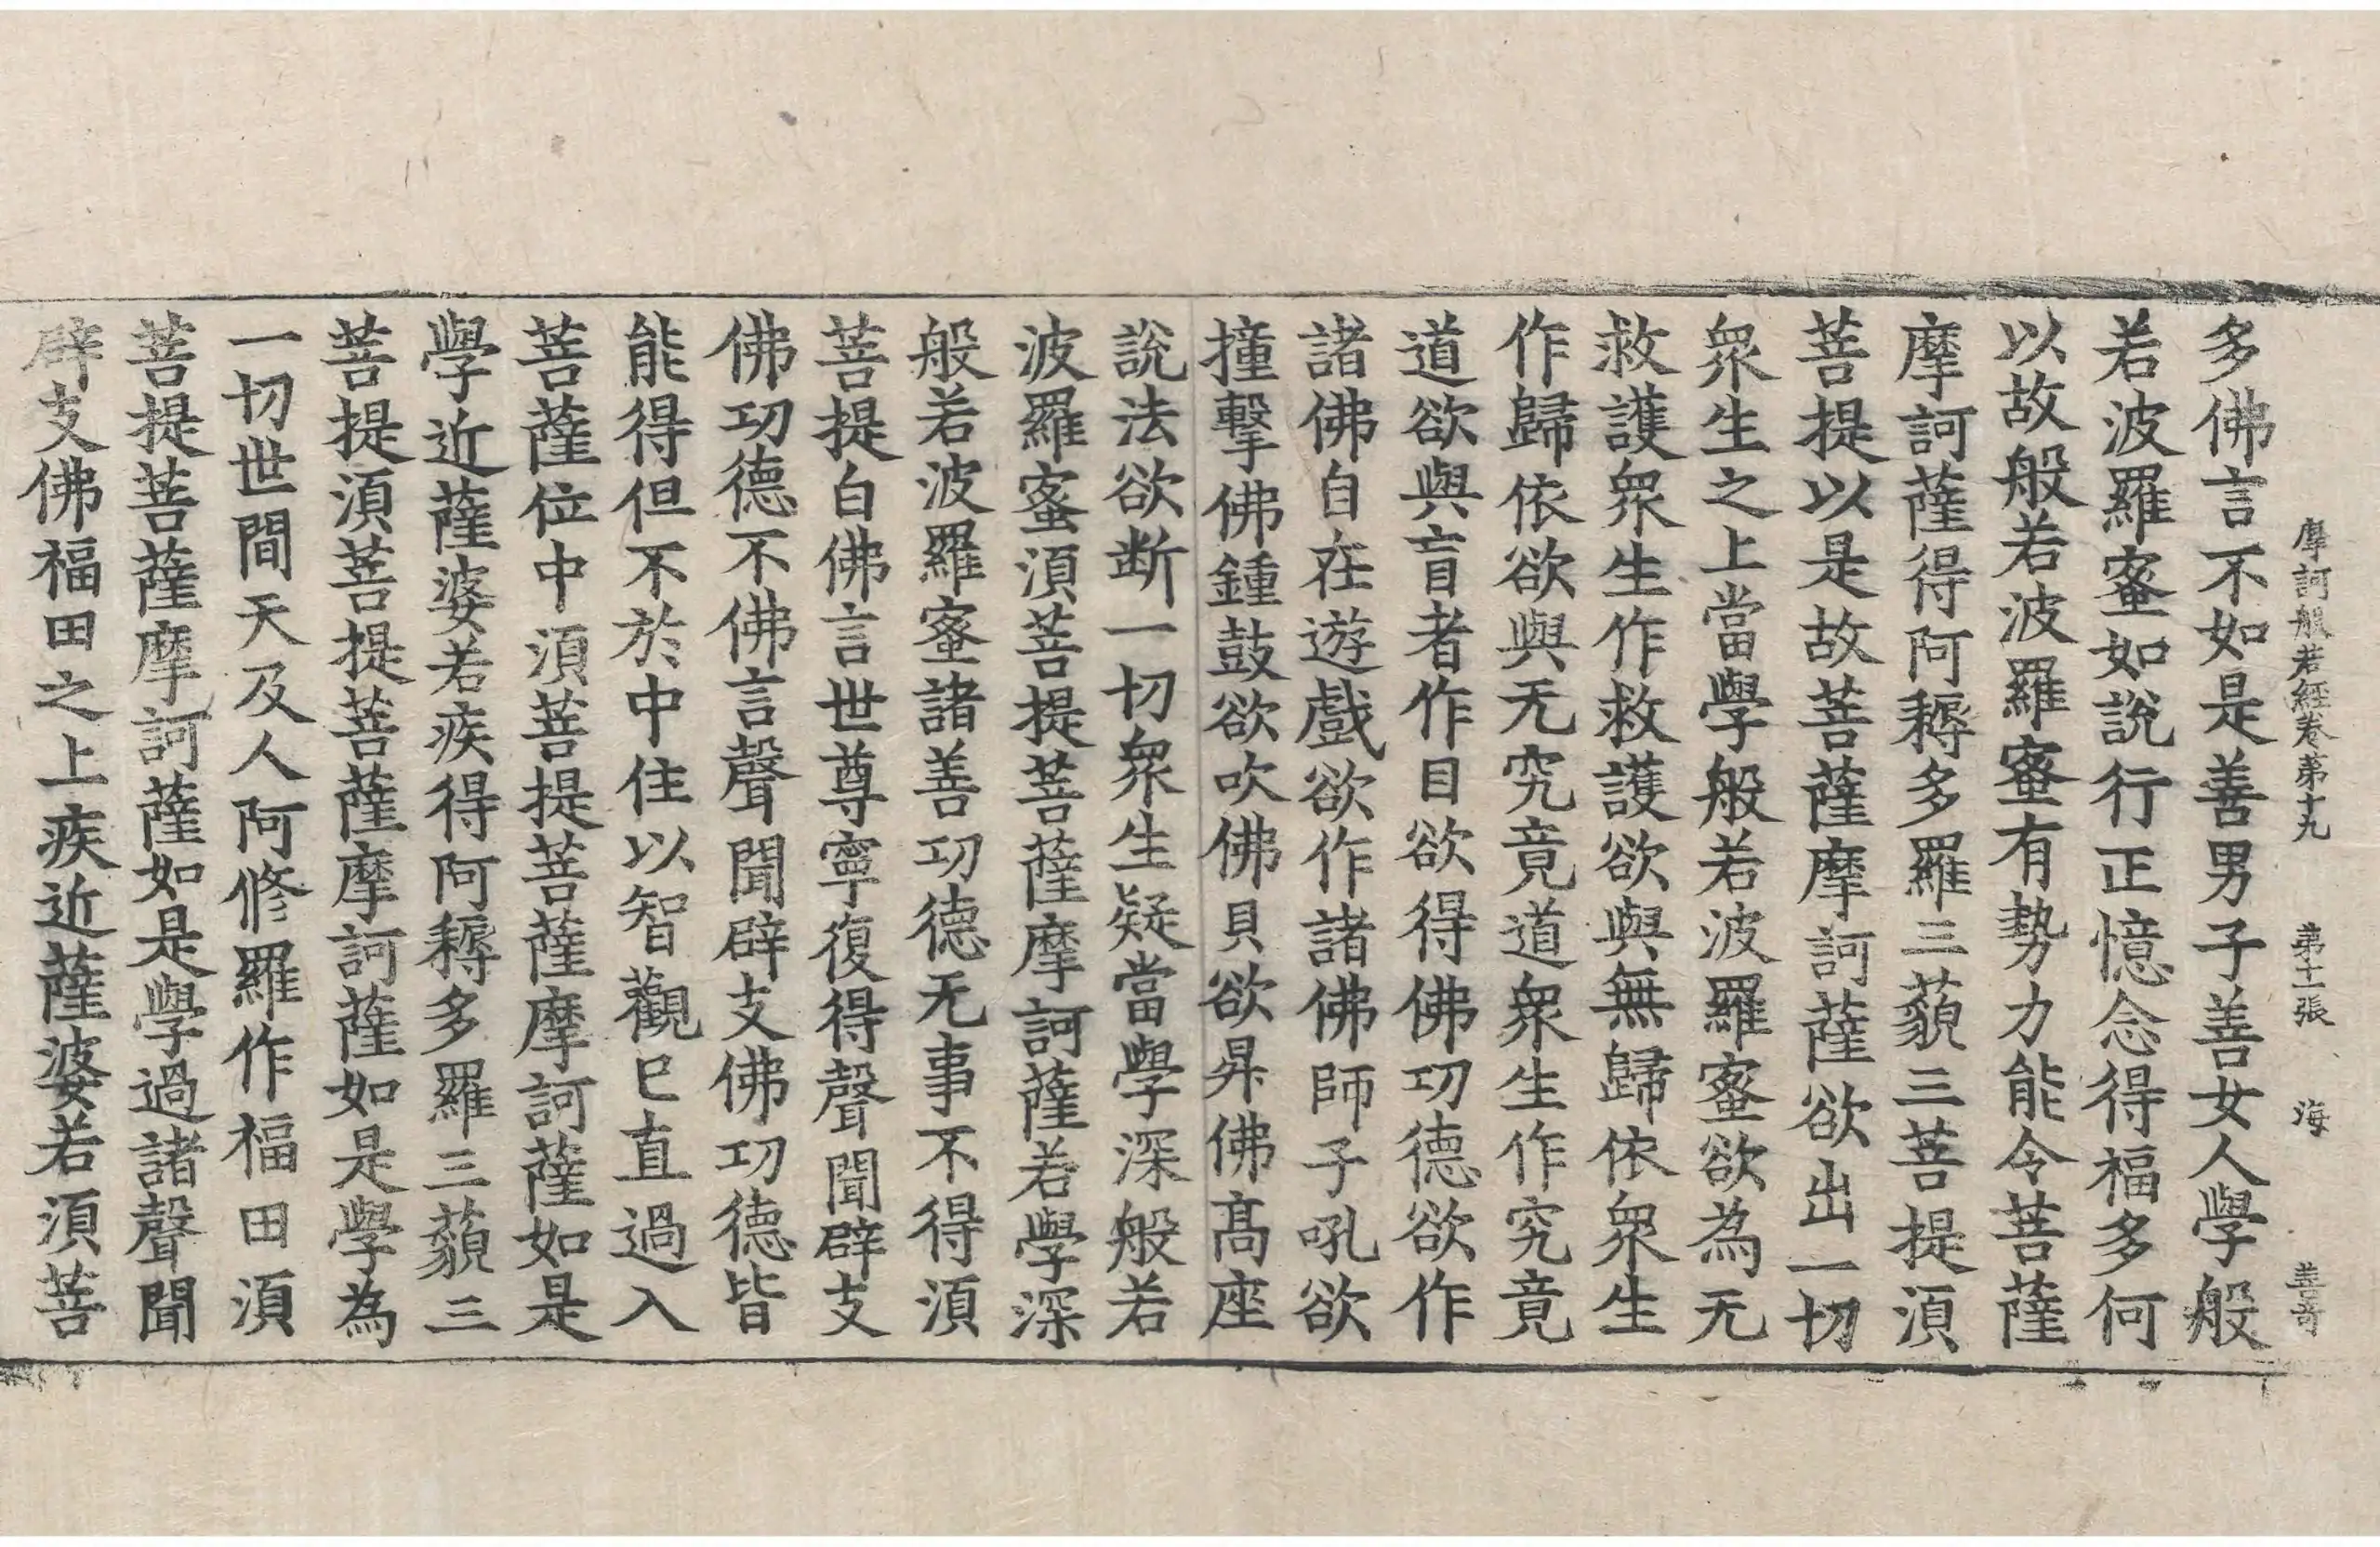 摩訶般若經卷第十九 第十二張 海 善奇
多佛言不如是善男子善女人學般
若波羅蜜如說行正憶念得福多何
以故般若波羅蜜有勢力能令菩薩
摩訶薩得阿耨多羅三藐三菩提須
菩提以是故菩薩摩訶薩欲出一切
衆生之上當學般若波羅蜜欲為无
救護衆生作救護欲與無歸依衆生
作歸依欲與无究竟道衆生作究竟
道欲與盲者作目欲得佛功德欲作
諸佛自在遊戲欲作諸佛師子吼欲
撞擊佛鍾鼓欲吹佛貝欲昇佛高座
說法欲断一切衆生疑當學深般若
波羅蜜須菩提菩薩摩訶薩若學深
般若波羅蜜諸善功德无事不得須
菩提白佛言世尊寧復得聲聞辟支
佛功德不佛言聲聞辟支佛功德皆
能得但不於中住以智觀已直過入
菩薩位中須菩提菩薩摩訶薩如是
學近薩婆若疾得阿耨多羅三藐三
菩提須菩提菩薩摩訶薩如是學為
一切世間天及人阿修羅作福田須
菩提菩薩摩訶薩如是學過諸聲聞
辟支佛福田之上疾近薩婆若須菩